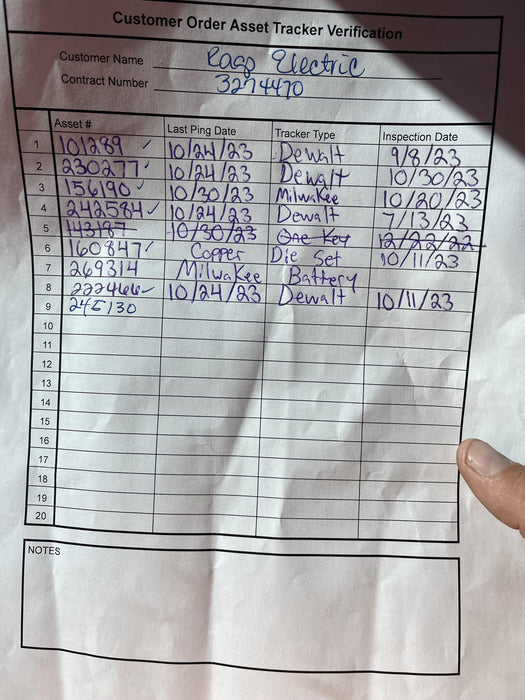 Customer Order Asset Tracker Verification
Customer Name Rago Electric
Contract Number 3274470
Asset # Last Ping Date Tracker Type Inspection Date
1 101289 ✓ 10/24/23 Dewalt 9/8/23
2 230277 ✓ 10/24/23 Dewalt 10/30/23
3 156190 ✓ 10/30/23 Milwakee 10/20/23
4 242584 ✓ 10/24/23 Dewalt 7/13/23
5 143187 10/30/23 One Key 12/22/22
6 160847 ✓ Copper Die Set 10/11/23
7 269314 Milwakee Battery
8 222466 ✓ 10/24/23 Dewalt 10/11/23
9 245130
10
11
12
13
14
15
16
17
18
19
20
NOTES